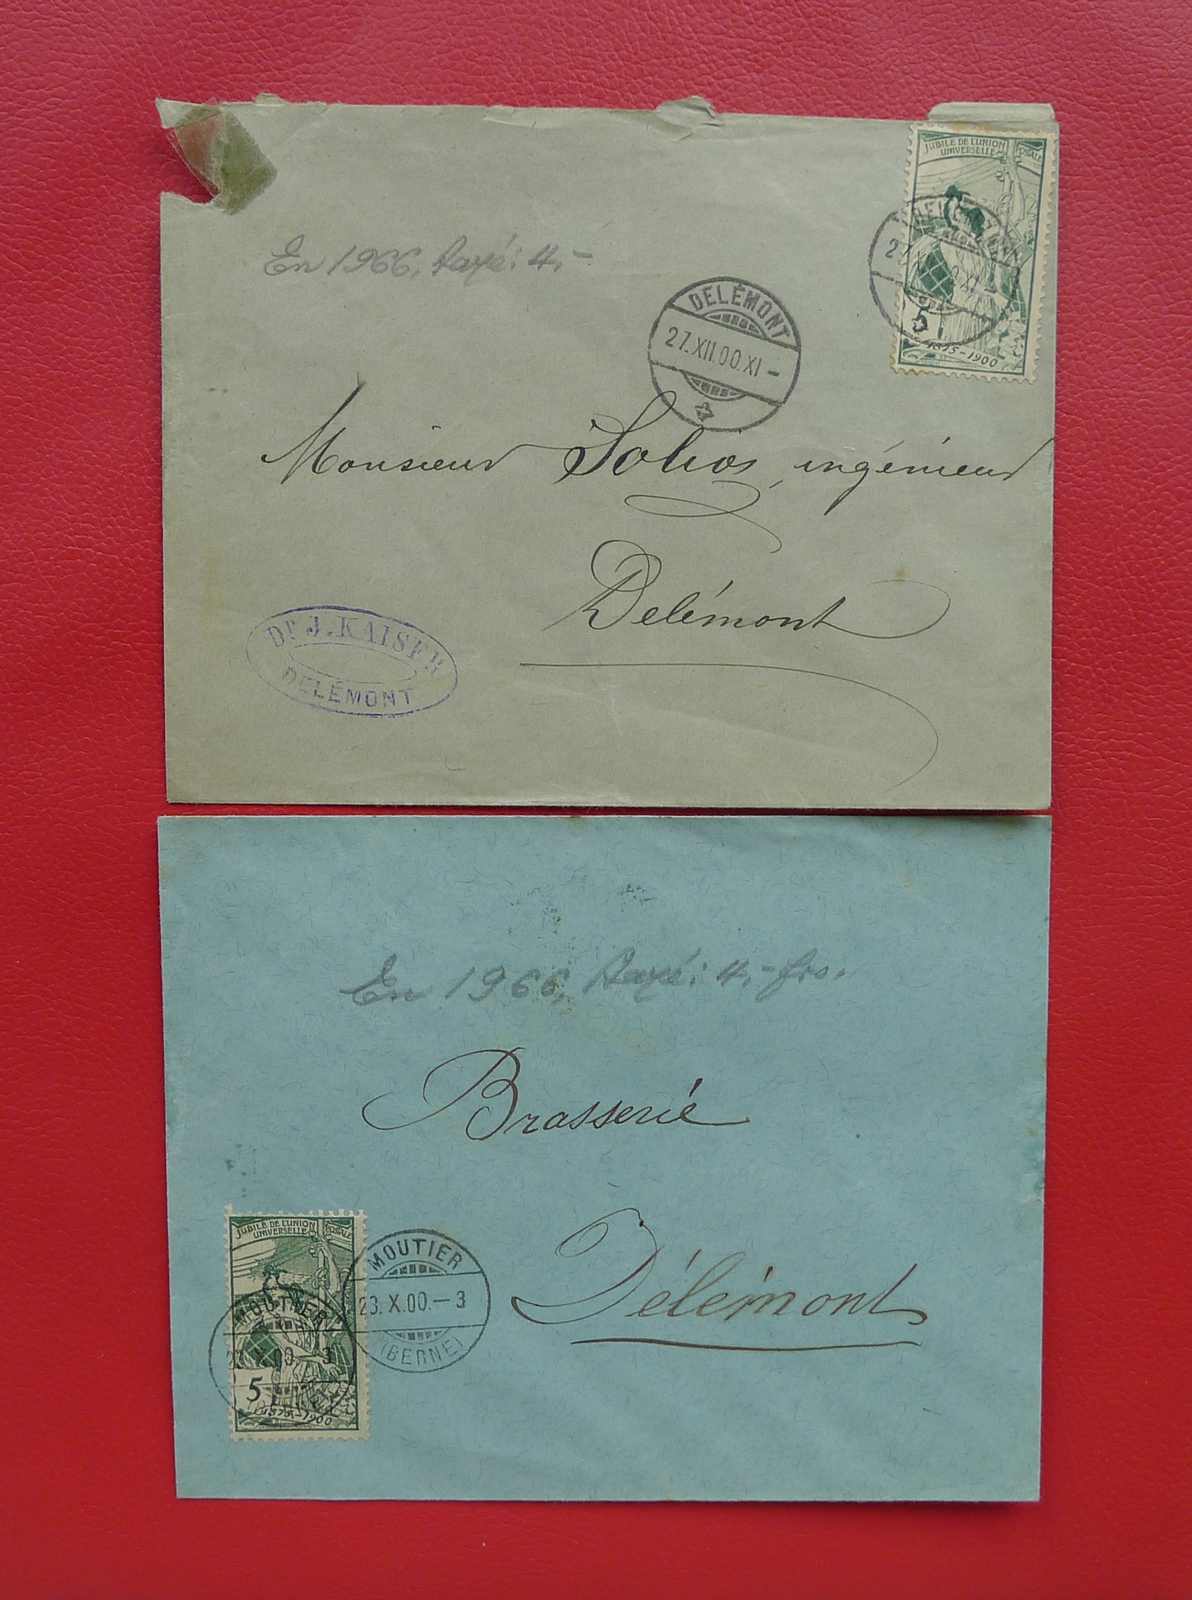 JUBILÉ DE L'UNION POSTALE
UNIVERSELLE
5
1875-1900
En 1966, Payé: 4.-
DELÉMONT
27.XII.00.XI-
Monsieur Solios, ingénieur
Delémont
Dr J. KAISER
DELÉMONT
En 1966, Payé: 4.- frs.
Brasserie
Délémont
JUBILÉ DE L'UNION POSTALE
UNIVERSELLE
5
1875-1900
MOUTIER
23.X.00.-3
MOUTIER
23.X.00.-3
(BERNE)